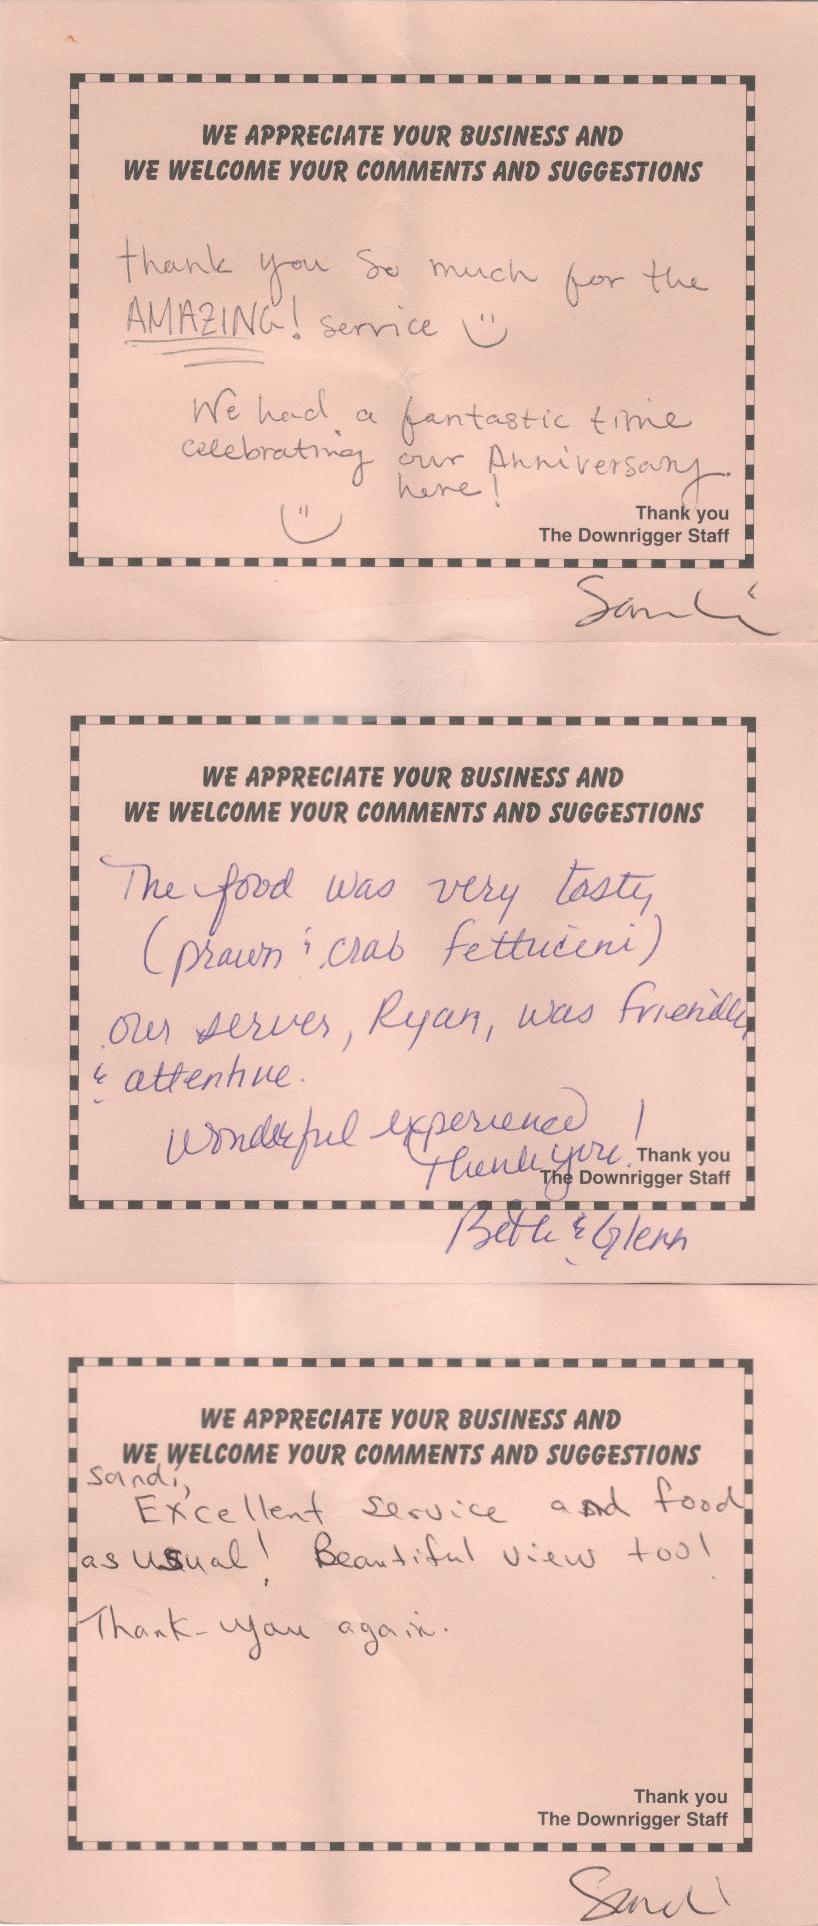 WE APPRECIATE YOUR BUSINESS AND
WE WELCOME YOUR COMMENTS AND SUGGESTIONS
thank you so much for the
AMAZING! service
We had a fantastic time
celebrating our Anniversary
here!
Thank you
The Downrigger Staff
Sandi
9/17
WE APPRECIATE YOUR BUSINESS AND
WE WELCOME YOUR COMMENTS AND SUGGESTIONS
The food was very tasty
(prawn & crab fettuceni)
our server, Ryan, was friendly
& attentive.
Wonderful experience!
Thank you!
Thank you
The Downrigger Staff
Beth & Glenn
WE APPRECIATE YOUR BUSINESS AND
WE WELCOME YOUR COMMENTS AND SUGGESTIONS
Sandi,
Excellent service and food
as usual! Beautiful view too!
Thank-you again.
Thank you
The Downrigger Staff
Sandi